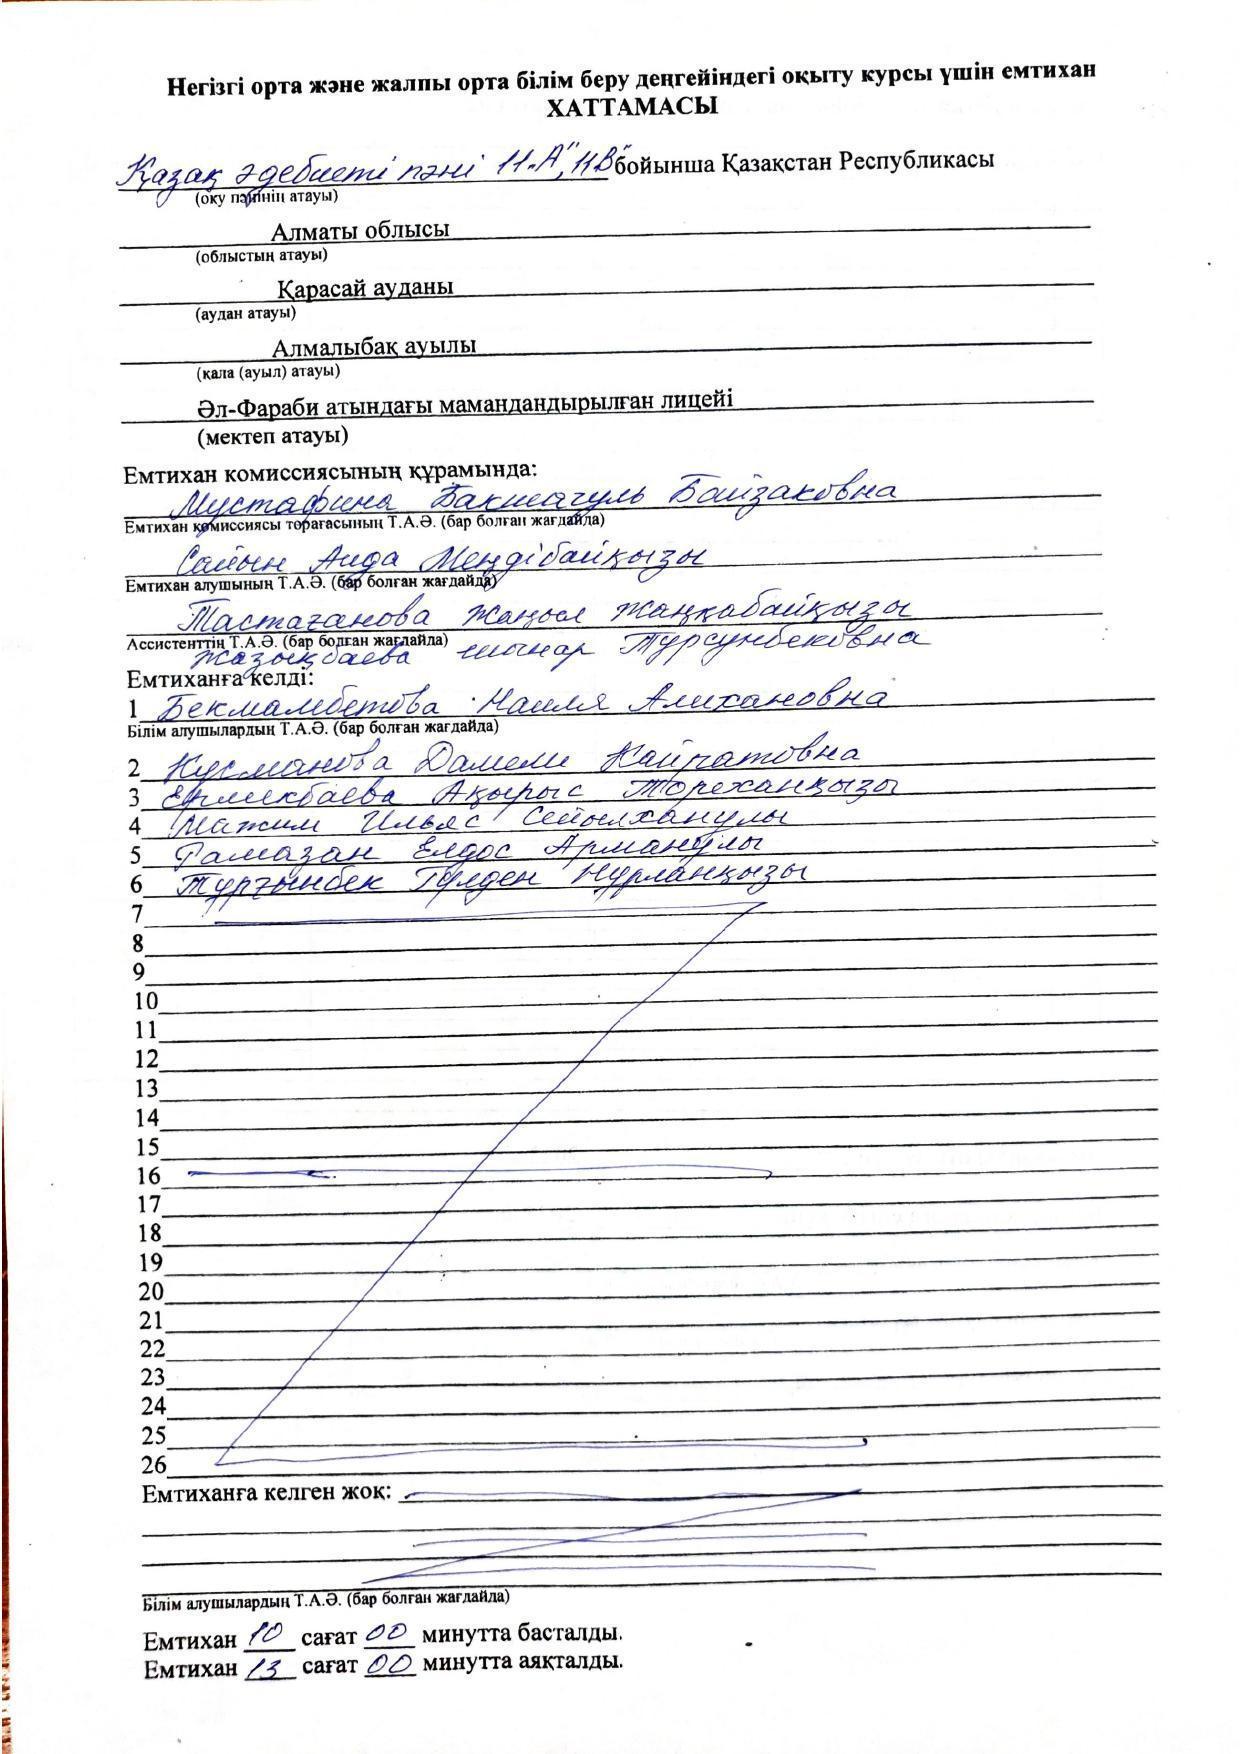 Негізгі орта және жалпы орта білім беру деңгейіндегі оқыту курсы үшін емтихан
ХАТТАМАСЫ
Қазақ әдебиеті пәні 11-А", 11В" бойынша Қазақстан Республикасы
(оқу пәнінің атауы)
Алматы облысы
(облыстың атауы)
Қарасай ауданы
(аудан атауы)
Алмалыбақ ауылы
(қала (ауыл) атауы)
Әл-Фараби атындағы мамандандырылған лицейі
(мектеп атауы)
Емтихан комиссиясының құрамында:
Мустафина Бакшагуль Байзаковна
Емтихан комиссиясы төрағасының Т.А.Ә. (бар болған жағдайда)
Сайын Аида Меңдібайқызы
Емтихан алушының Т.А.Ә. (бар болған жағдайда)
Тастағанова Жаңыл Жаңқабайқызы
Ассистенттің Т.А.Ә. (бар болған жағдайда)
Жазықбаева Шынар Турсунбековна
Емтиханға келді:
1 Бекмамбетова Наиля Алихановна
Білім алушылардың Т.А.Ә. (бар болған жағдайда)
2 Кусманова Дамели Кайратовна
3 Ермекбаева Ақырыс Төреханқызы
4 Мажим Ильяс Сейылханұлы
5 Рамазан Елдос Арманұлы
6 Тұрғынбек Гүлден Нұрланқызы
7
8
9
10
11
12
13
14
15
16
17
18
19
20
21
22
23
24
25
26
Емтиханға келген жоқ:
Білім алушылардың Т.А.Ә. (бар болған жағдайда)
Емтихан 10 сағат 00 минутта басталды.
Емтихан 13 сағат 00 минутта аяқталды.